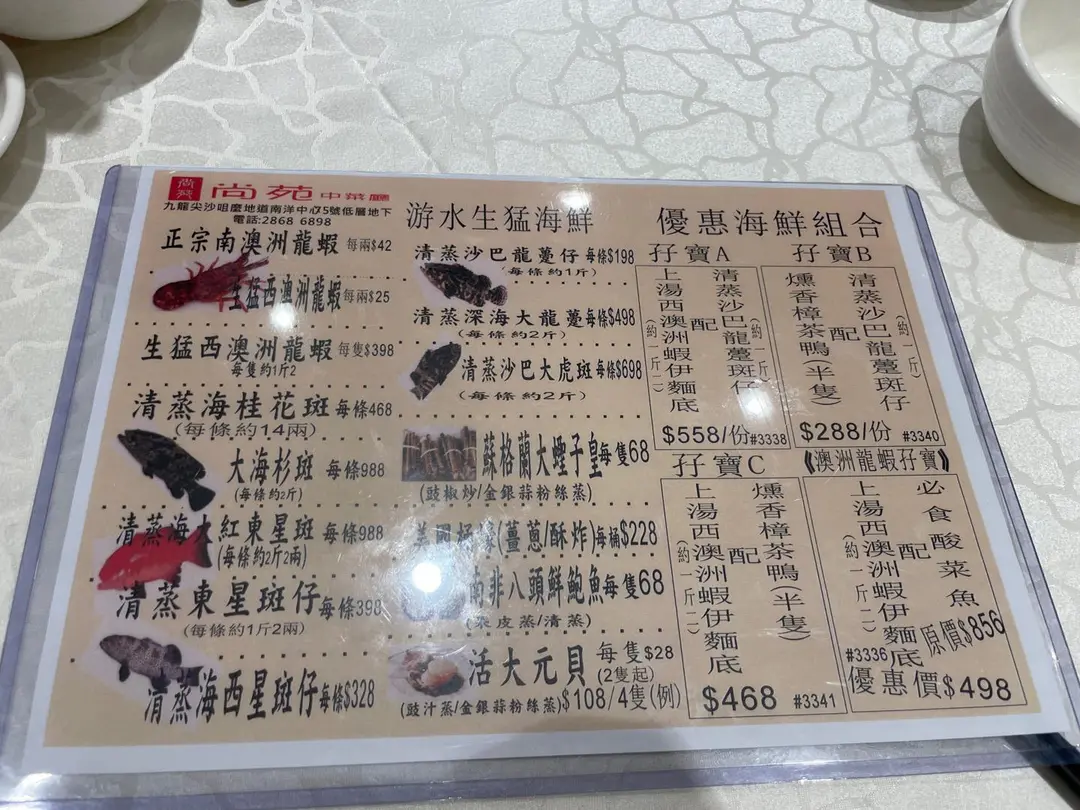 尚苑
尚苑 中菜廳
九龍尖沙咀麼地道南洋中心5號低層地下
電話:2868 6898
正宗南澳洲龍蝦 每兩$42
生猛西澳洲龍蝦 每兩$25
生猛西澳洲龍蝦 每隻$398
每隻約1斤2
清蒸海桂花斑 每條468
(每條約14兩)
大海杉斑 每條988
(每條約2斤)
清蒸海大紅東星斑 每條988
(每條約2斤2兩)
清蒸東星斑仔 每條398
(每條約1斤2兩)
清蒸海西星斑仔 每條$328
游水生猛海鮮
清蒸沙巴龍躉仔 每條$198
(每條約1斤)
清蒸深海大龍躉 每條$498
(每條約2斤)
清蒸沙巴大虎斑 每條$698
(每條約2斤)
蘇格蘭大蟶子皇 每隻68
(豉椒炒/金銀蒜粉絲蒸)
美國 (薑蔥/酥炸) 每桶$228
南非八頭鮮鮑魚 每隻68
皮蒸/清蒸)
活大元貝 每隻$28
(2隻起)
(豉汁蒸/金銀蒜粉絲蒸) $108/4隻(例)
優惠海鮮組合
孖寶A
清蒸沙巴龍躉斑仔
(約一斤)
配
上湯西澳洲蝦伊麵底
(約一斤二)
$558/份 #3338
孖寶B
清蒸沙巴龍躉斑仔
(約一斤)
配
燻香樟茶鴨(半隻)
$288/份 #3340
孖寶C
燻香樟茶鴨(半隻)
配
上湯西澳洲蝦伊麵底
(約一斤二)
$468 #3341
《澳洲龍蝦孖寶》
必食酸菜魚
配
上湯西澳洲蝦伊麵底
(約一斤二)
原價$856
#3336
優惠價$498